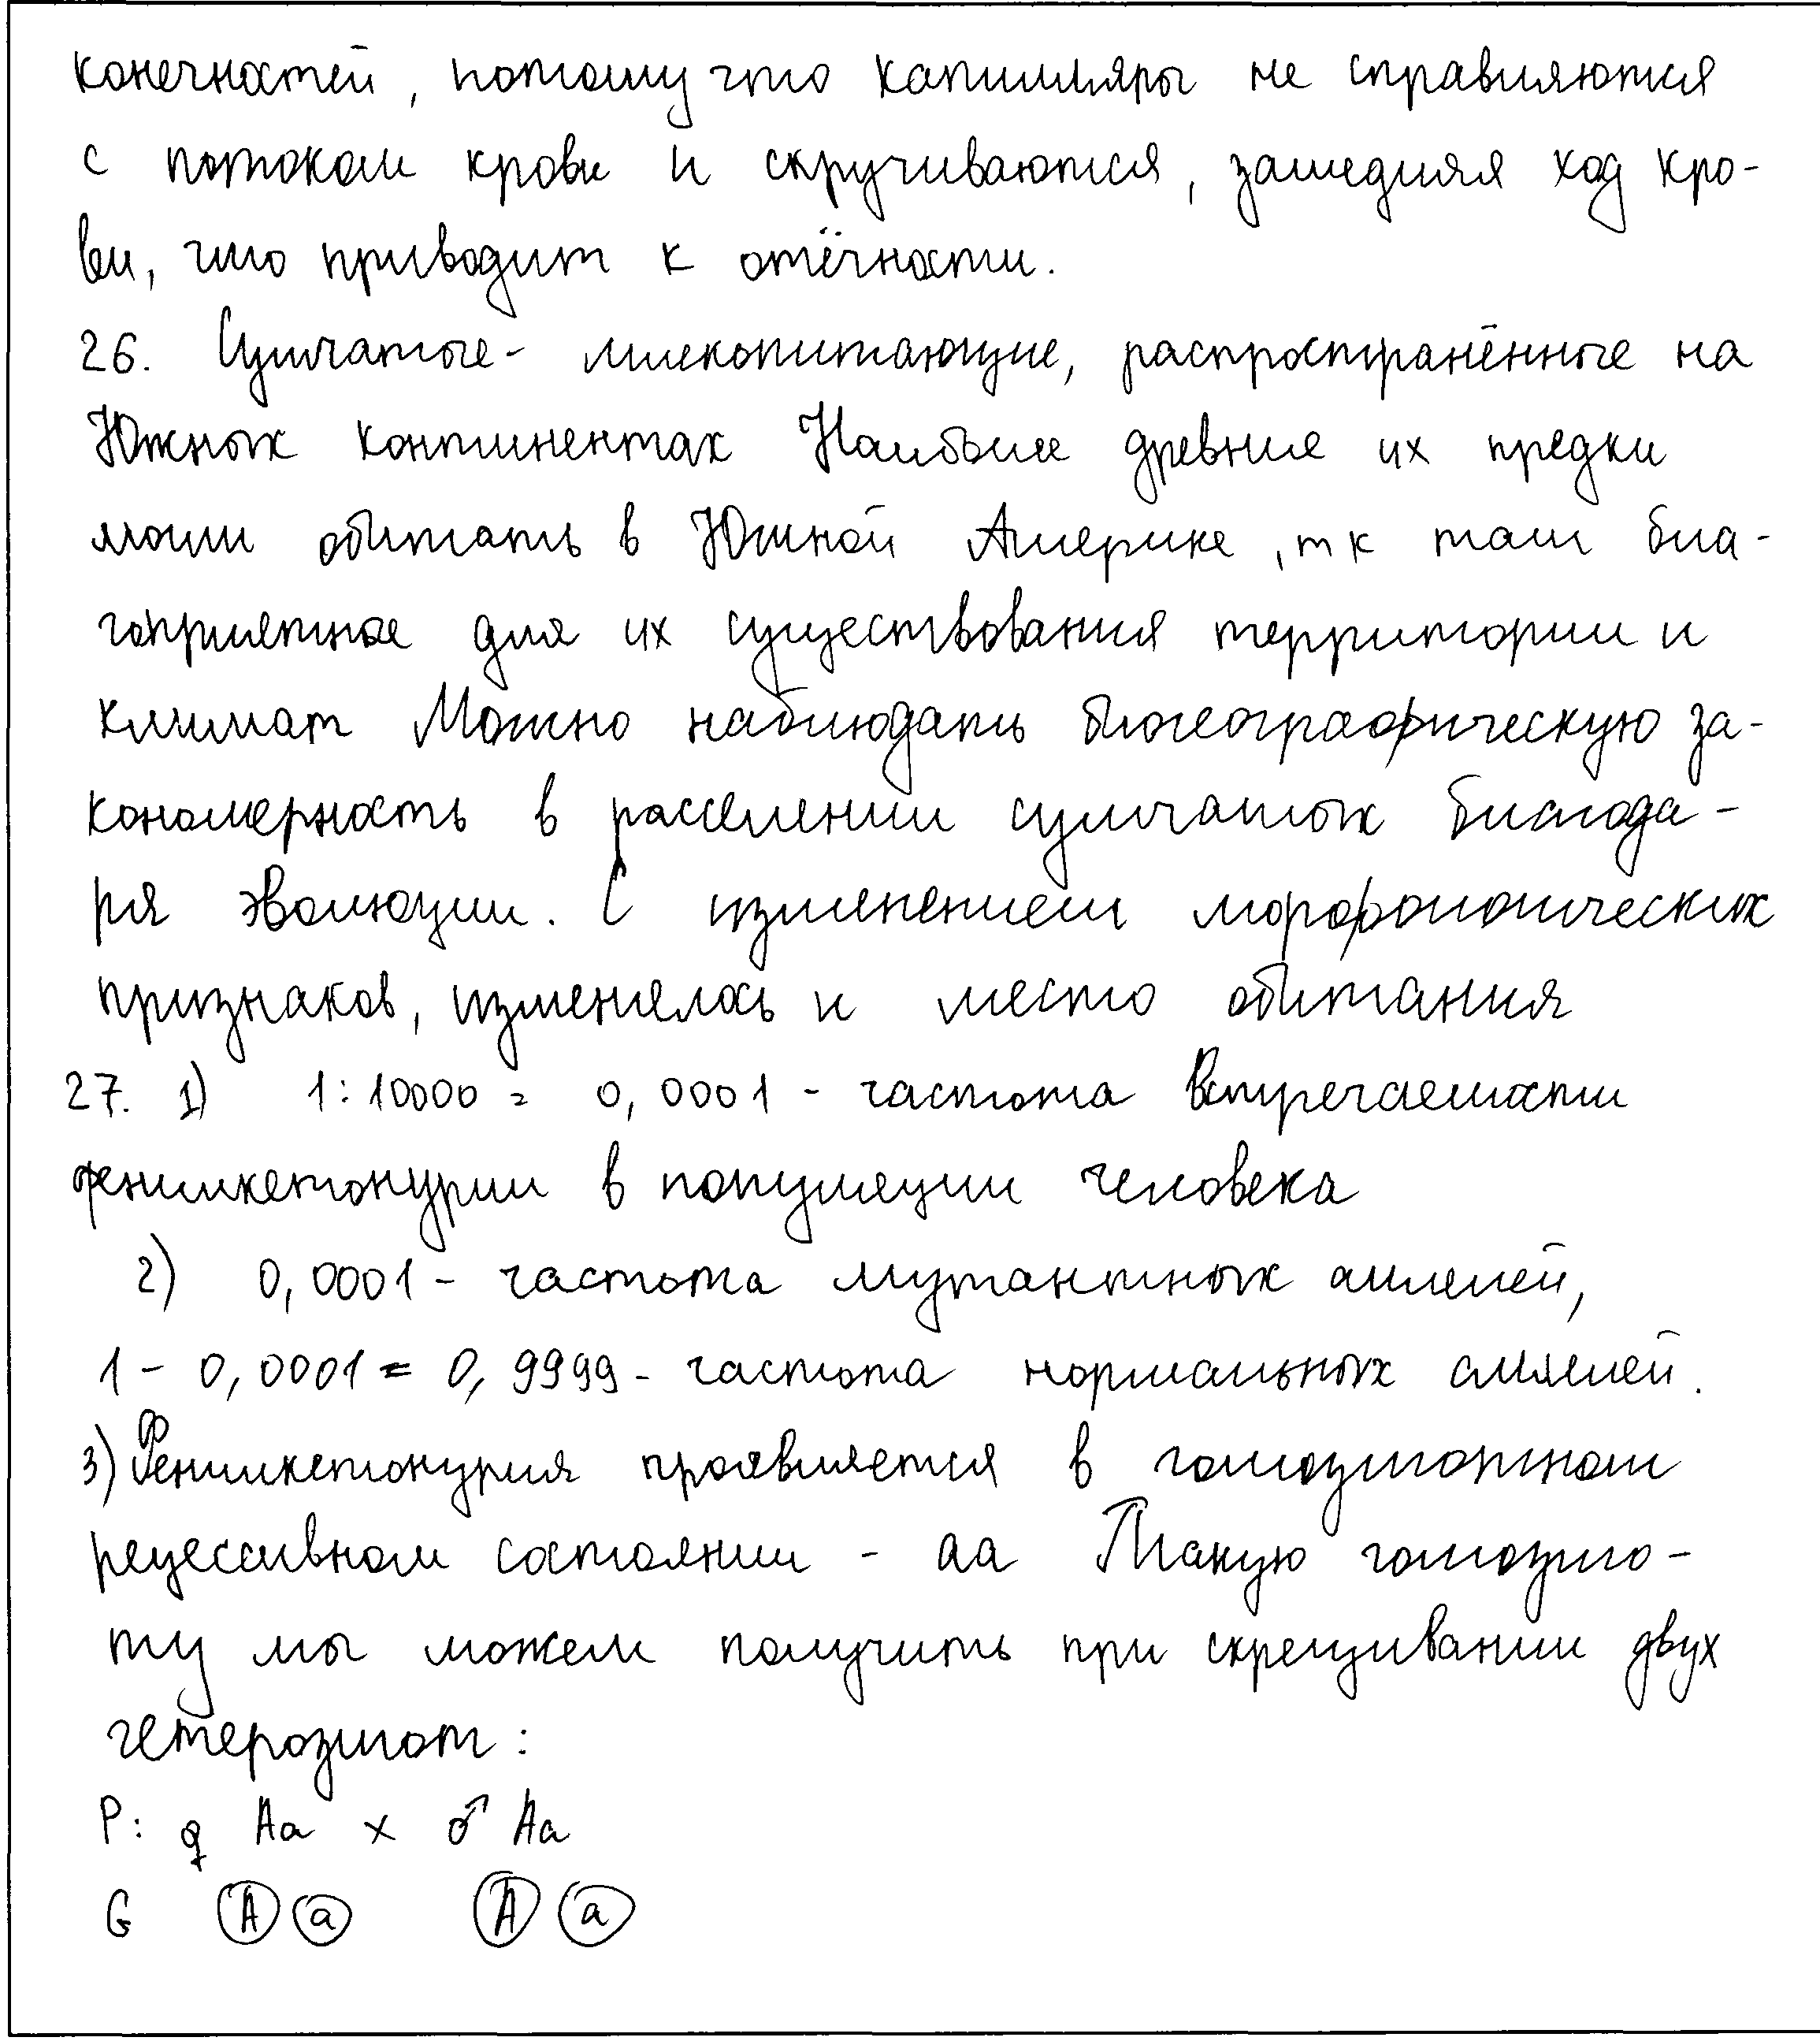 конечностей, потому что капилляры не справляются
с потоком крови и скручиваются, замедляя ход кро-
ви, что приводит к отёчности.
26. Сумчатые - млекопитающие, распространённые на
Южных континентах Наиболее древние их предки
могли обитать в Южной Америке, т к там бла-
гоприятное для их существования территории и
климат Можно наблюдать биогеографическую за-
кономерность в расселении сумчатых благода-
ря эволюции. С изменением морфологических
признаков, изменялось и место обитания
27. 1) 1:10000 = 0,0001 - частота встречаемости
фенилкетонурии в популяции человека
2) 0,0001 - частота мутантных аллелей,
1 - 0,0001 = 0,9999 - частота нормальных аллелей.
3) Фенилкетонурия проявляется в гомозиготном
рецессивном состоянии - аа Такую гомозиго-
ту мы можем получить при скрещивании двух
гетерозигот:
P: ♀ Aa x ♂ Aa
G A a A a